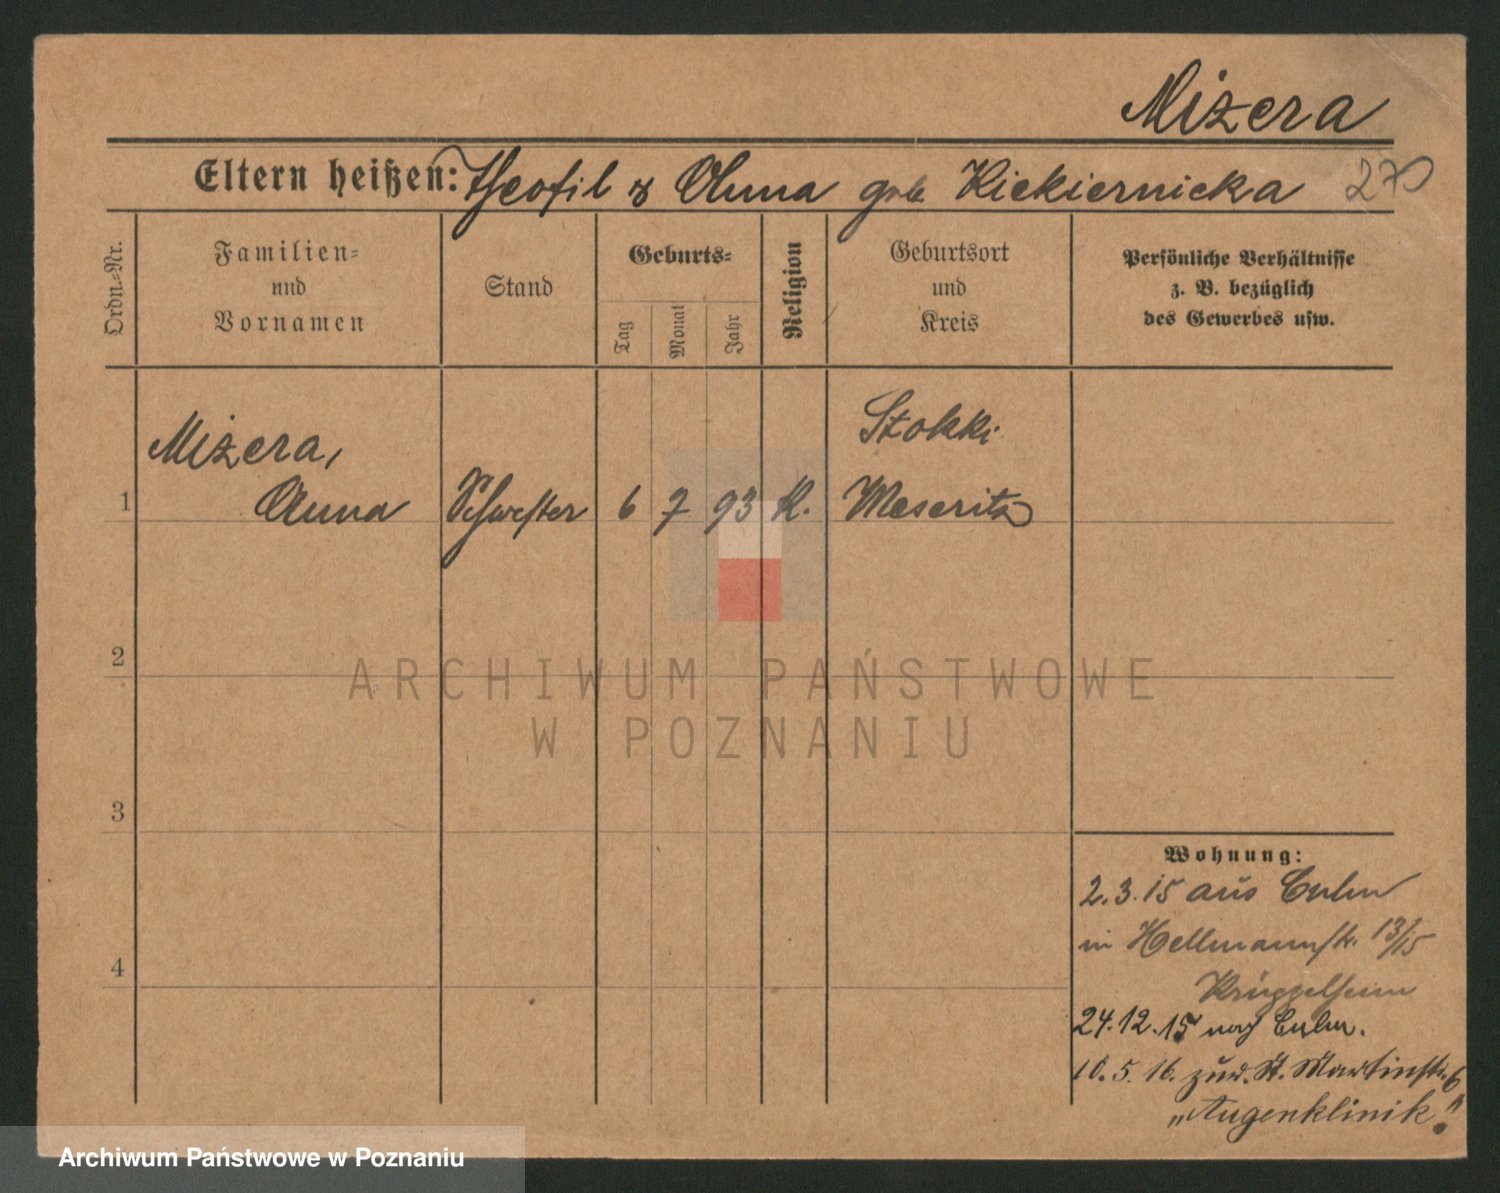 Mizera
Eltern heißen: Theofil & Anna geb. Kiekiernicka 270
Ordn.-Nr.
Familien-
und
Vornamen
Stand
Geburts-
Tag
Monat
Jahr
Religion
Geburtsort
und
Kreis
Persönliche Verhältnisse
z. B. bezüglich
des Gewerbes usw.
Mizera,
Stokki
1 Anna Schwester 6 7 93 K. Meseritz
2
ARCHIWUM PAŃSTWOWE
W POZNANIU
3
Wohnung:
2.3.15 aus Culm
in Hellmannstr. 13/15
4
Krüppelheim
24.12.15 nach Culm.
10.5.16. zur. St. Martinstr. 6
"Augenklinik."
Archiwum Państwowe w Poznaniu